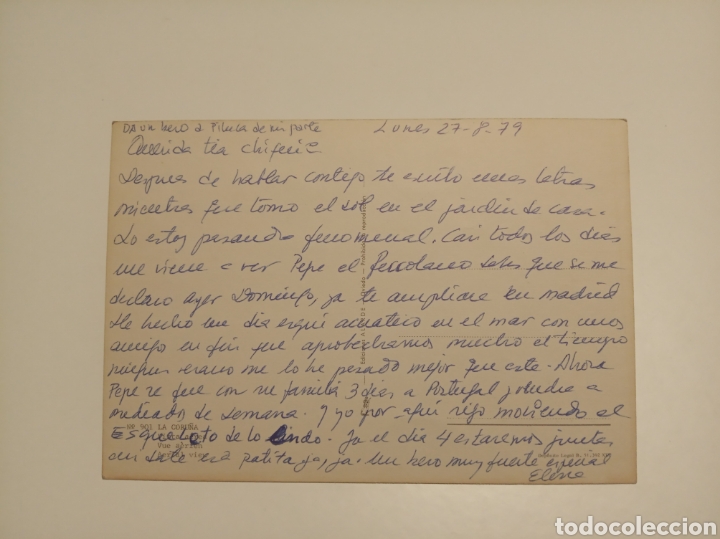 DA un beso a Piluca de mi parte
Lunes 27-8-79
Querida tia
Despues de hablar contigo te escribo unas letras
mientras que tomo el sol en el jardin de casa.
Lo estoy pasando fenomenal. Casi todos los dias
me viene a ver Pepe el ferrolano sabes que se me
declaro ayer Domingo, ya te ampliare en madrid
He hecho un dia esquí acuatico en el mar con unos
amigo en fin que aprobechamos mucho el tiempo
ningun verano me lo he pasado mejor que este. Ahora
Pepe se fue con su familia 3 dias a Portugal
mediados de semana. Y yo por aquí sigo moviendo el
Nº 901 LA CORUÑA
ESqueLeto de lo lindo. Ya el dia 4 estaremos juntas
Vue
ja, ja. Un beso muy fuerte
Depósito Legal B.
todocoleccion